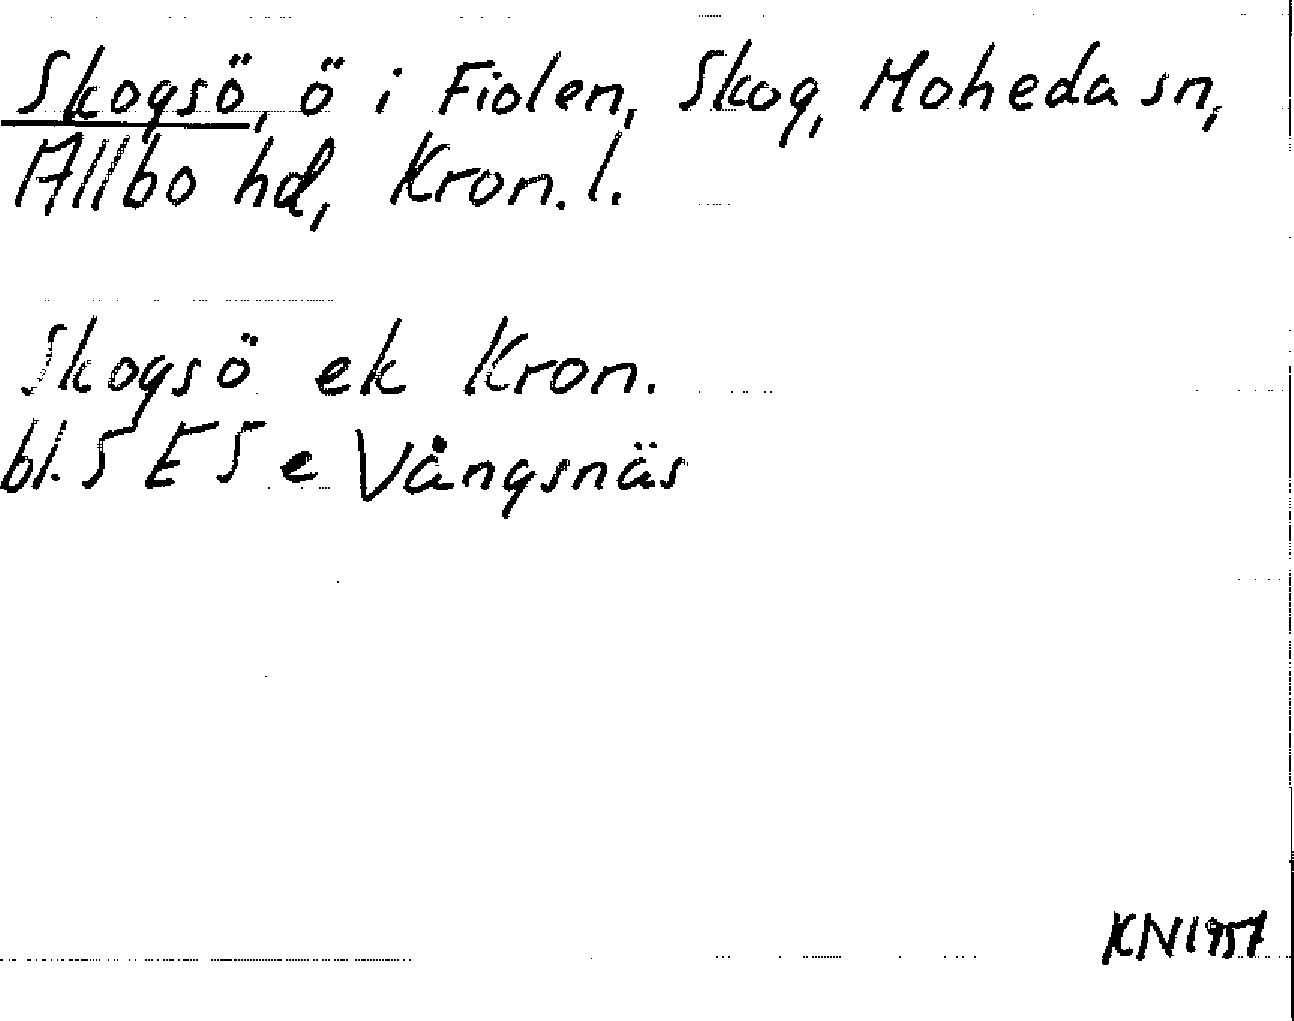 Skogsö, ö i Fiolen, Skog, Moheda sn,
Allbo hd, Kron. l.
Skogsö ek Kron.
bl. 5 E 5 e Vångsnäs
KN 1957